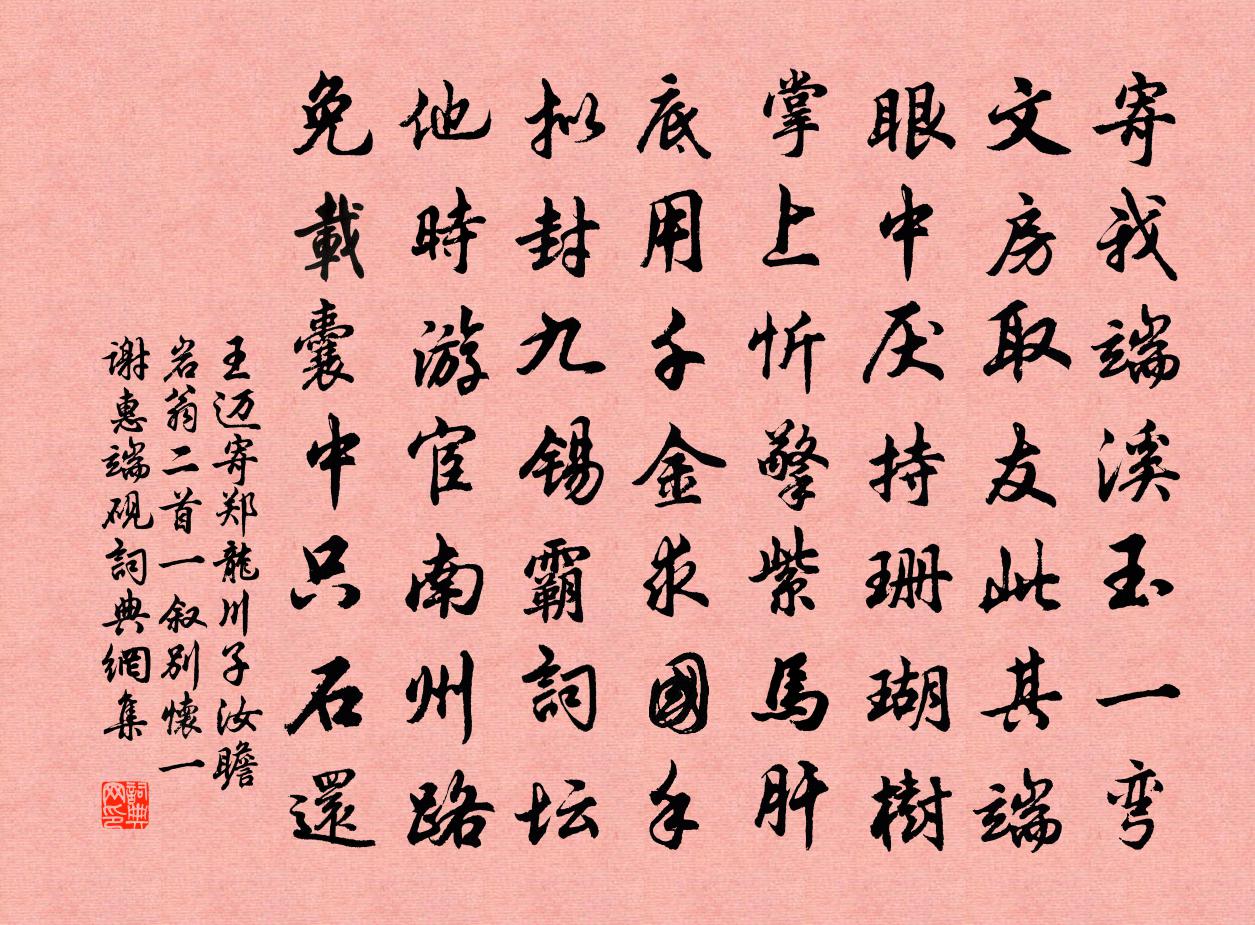 寄我端溪玉一弯
文房取友此其端
眼中厌持珊瑚樹
掌上忻擎紫馬肝
底用千金求國手
拟封九錫霸詞坛
他時游宦南州路
免載囊中只石還
王迈寄郑龍川子汝瞻
岩翁二首一叙别懷一
谢惠端砚詞典網集
詞典网印